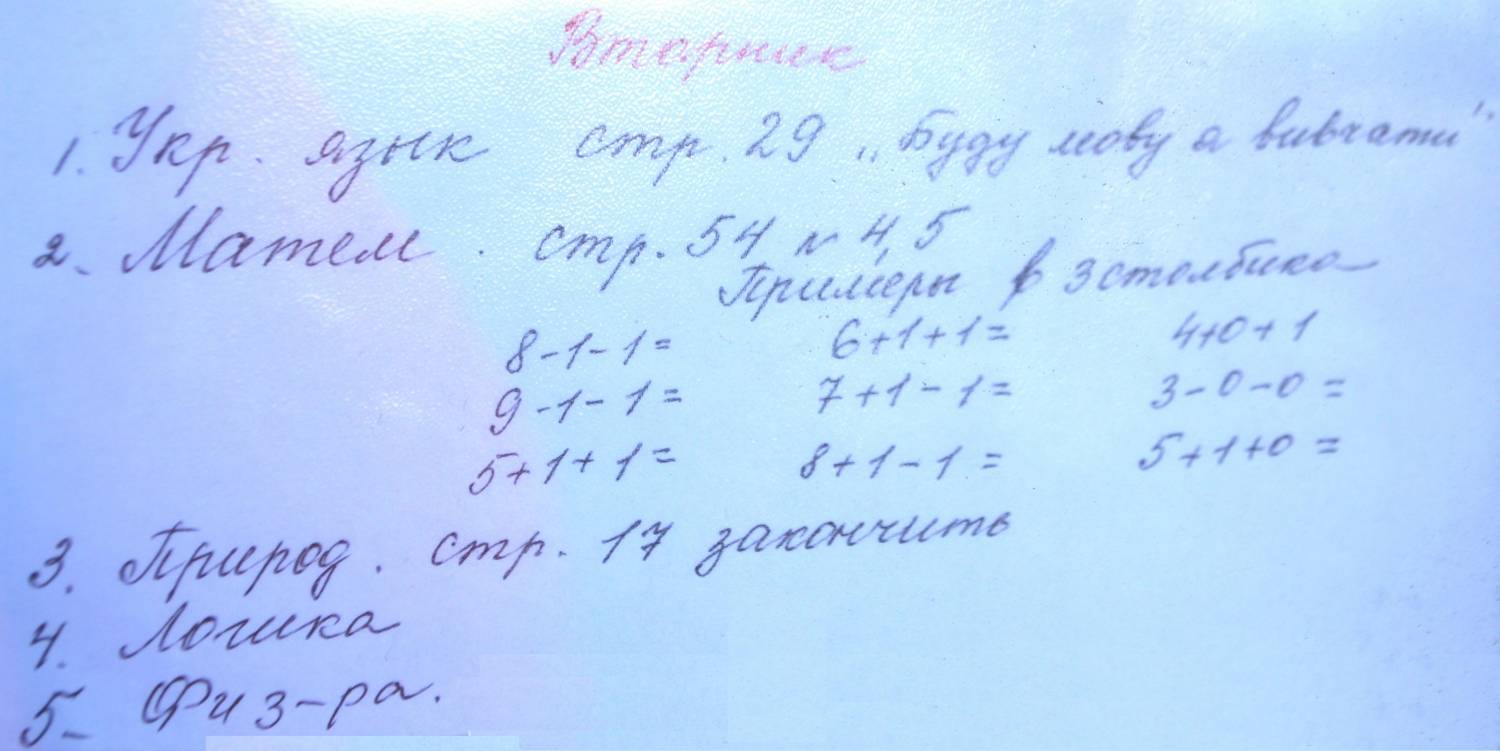 Вторник
1. Укр. язык стр. 29 „Буду мову я вивчати"
2. Матем. стр. 54 № 4, 5
Примеры в 3 столбика
8-1-1= 6+1+1= 4+0+1
9-1-1= 7+1-1= 3-0-0=
5+1+1= 8+1-1= 5+1+0=
3. Природ. стр. 17 закончить
4. Логика
5. Физ-ра.